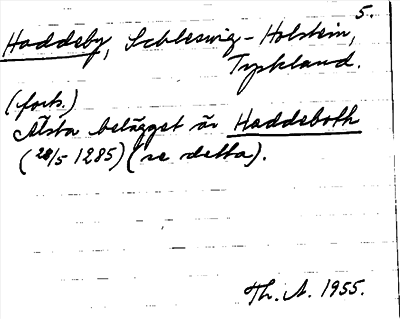 5.
Haddeby, Schleswig-Holstein,
Tyskland.
(forts.)
Älsta belägget är Haddeboth
(28/5 1285) (se detta).
Th. A. 1955.